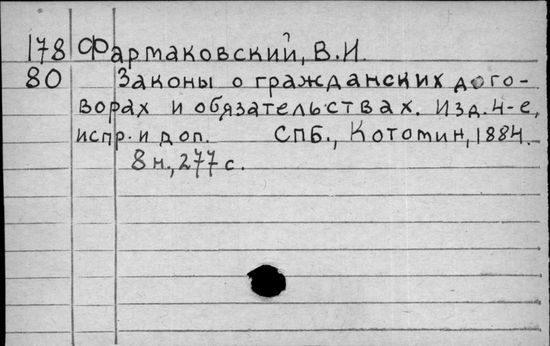 178 Фармаковский, В.И.
80 Законы о гражданских дого-
ворах и обязательствах. Изд. 4-е,
испр. и доп. СПБ., Котомин, 1884.
8 н., 277 с.